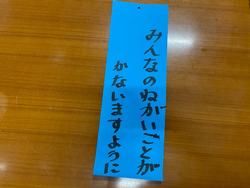 みんなのねがいごとが
かないますように